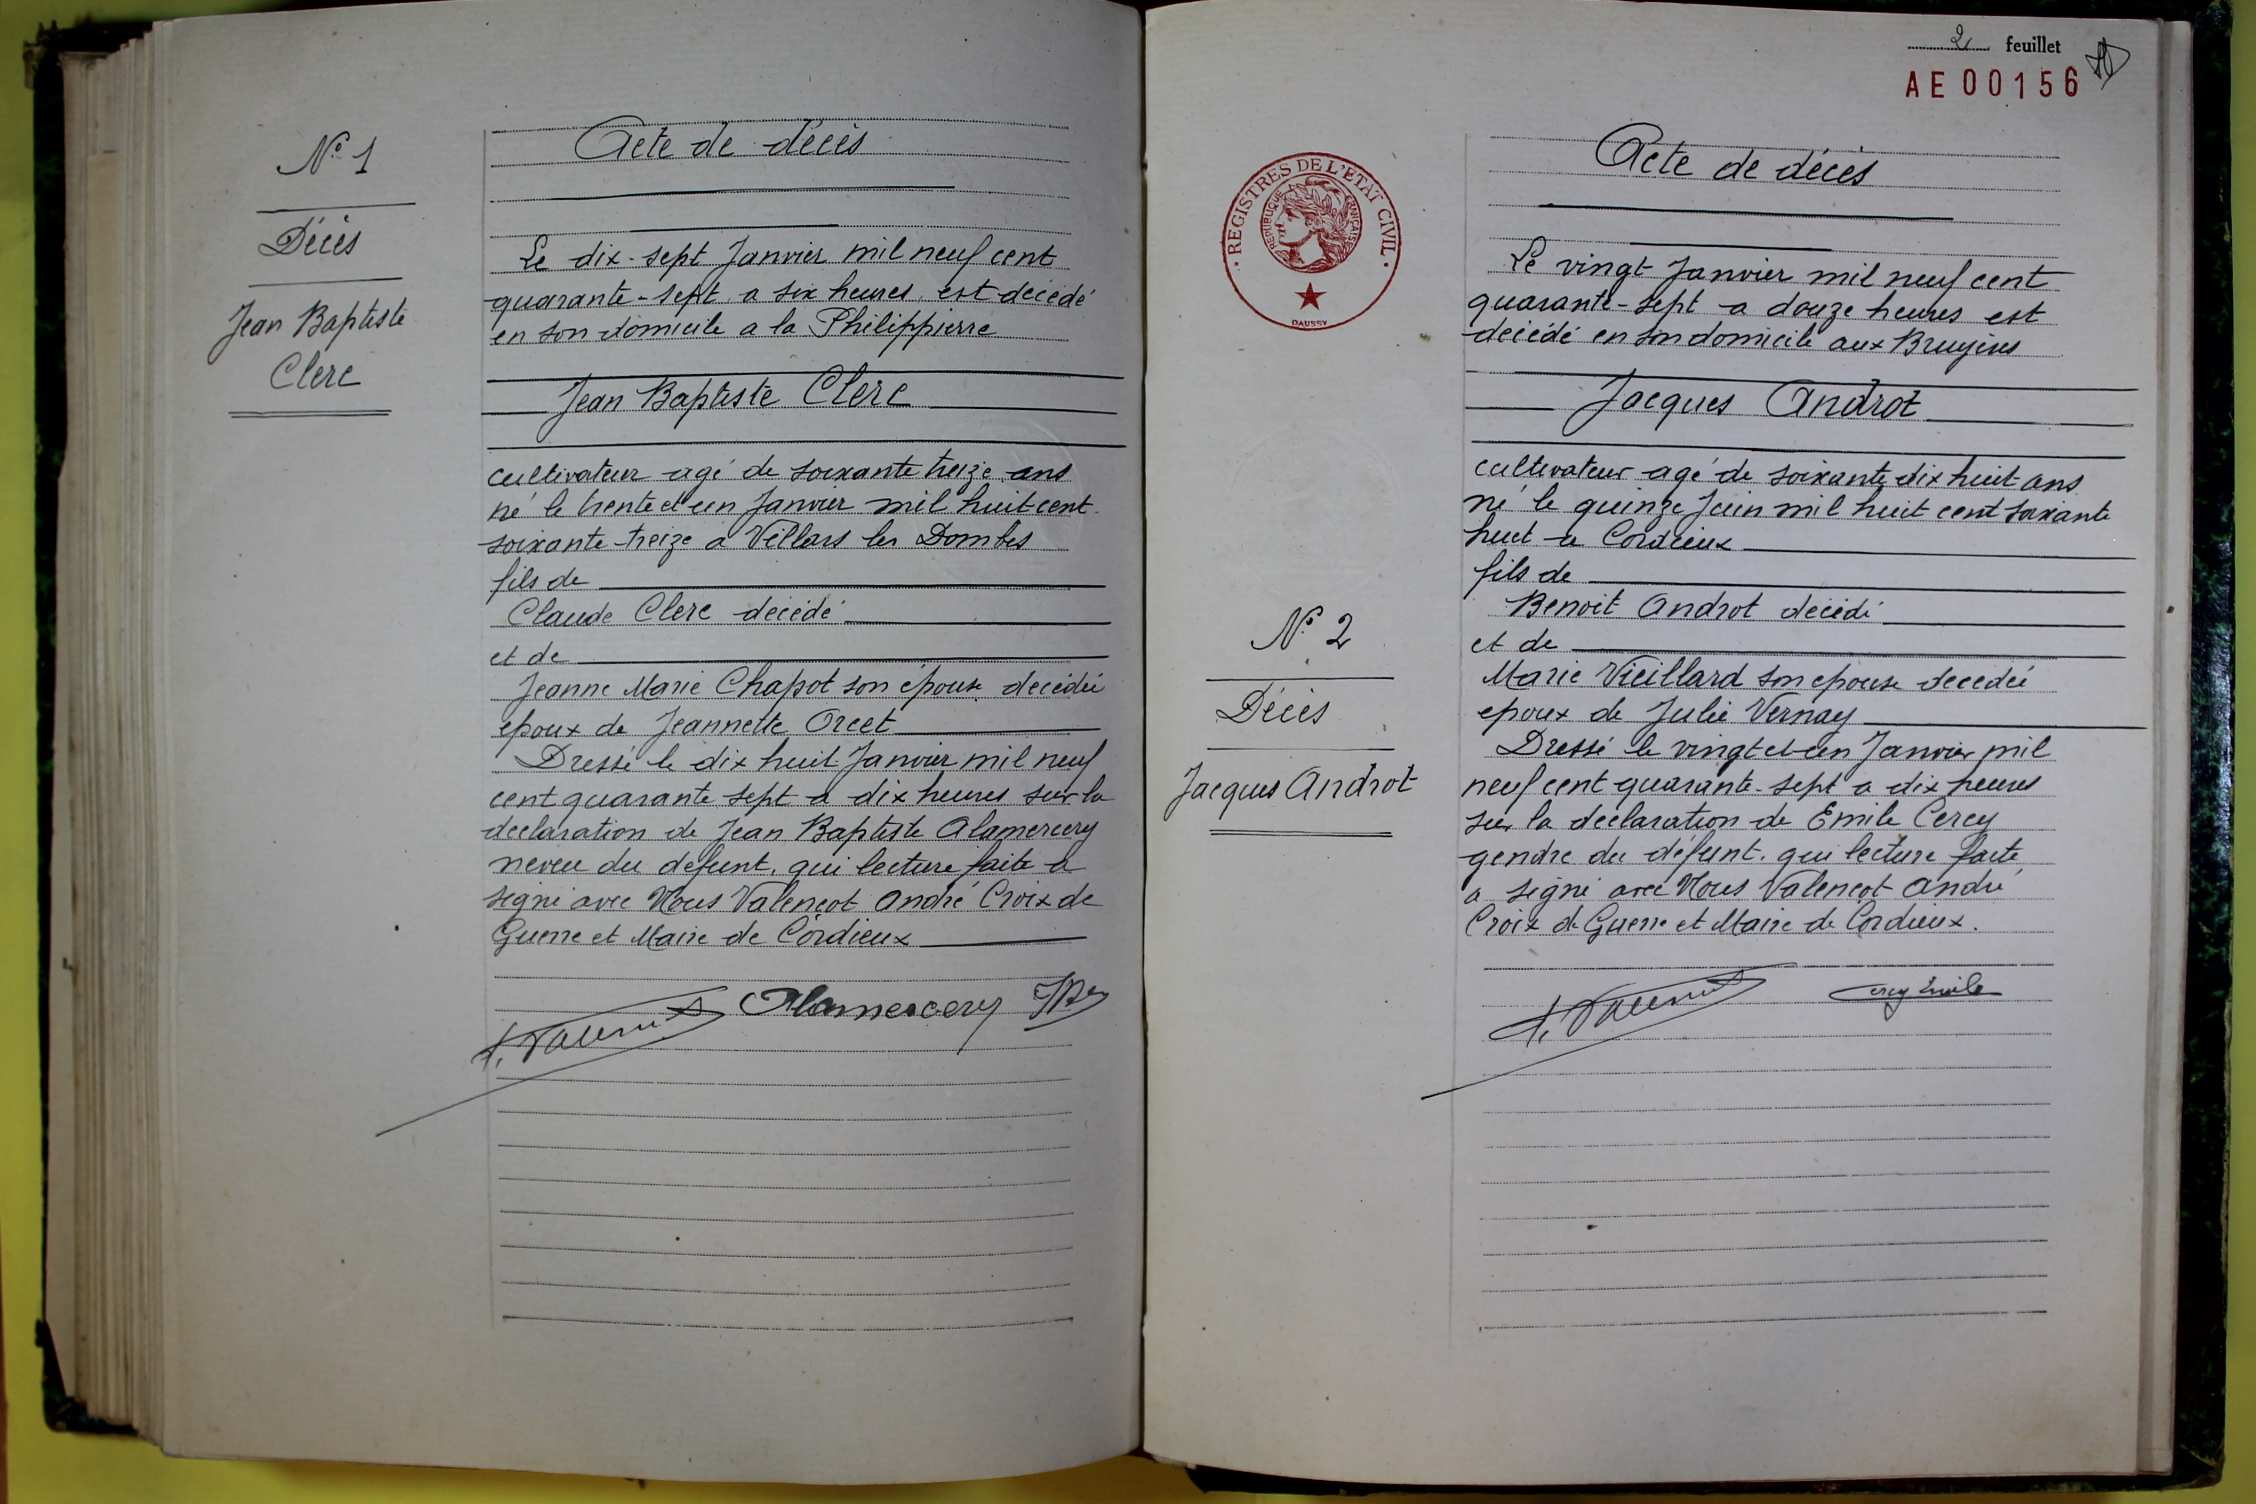 N° 1
Décès
Jean Baptiste
Clerc
Acte de décès
Le dix-sept Janvier mil neuf cent
quarante-sept a six heures est décédé
en son domicile a la Philippierre
Jean Baptiste Clerc
cultivateur agé de soixante treize ans
né le trente et un Janvier mil huit cent
soixante-treize a Villars les Dombes
fils de
Claude Clerc décédé
et de
Jeanne Marie Chapot son épouse decédée
epoux de Jeannette Orcet
Dressé le dix huit Janvier mil neuf
cent quarante sept a dix heures sur la
declaration de Jean Baptiste Alamercery
neveu du défunt, qui lecture faite a
signé avec Nous Valençot André Croix de
Guerre et Maire de Cordieux
A. Valençot Alamercery JB
2 feuillet
AE 00156
REGISTRES DE L'ETAT CIVIL
REPUBLIQUE FRANÇAISE
DAUSSY
N° 2
Décès
Jacques Androt
Acte de décès
Le vingt Janvier mil neuf cent
quarante-sept a douze heures est
decédé en son domicile aux Bruyères
Jacques Androt
cultivateur agé de soixante dix huit ans
né le quinze Juin mil huit cent soixante
huit a Cordieux
fils de
Benoit Androt décédé
et de
Marie Vieillard son epouse decedée
epoux de Julie Vernay
Dressé le vingt et un Janvier mil
neuf cent quarante-sept a dix heures
sur la déclaration de Emile Cercy
gendre du défunt. qui lecture faite
a signé avec Nous Valençot André
Croix de Guerre et Maire de Cordieux.
A. Valençot Cercy Emile